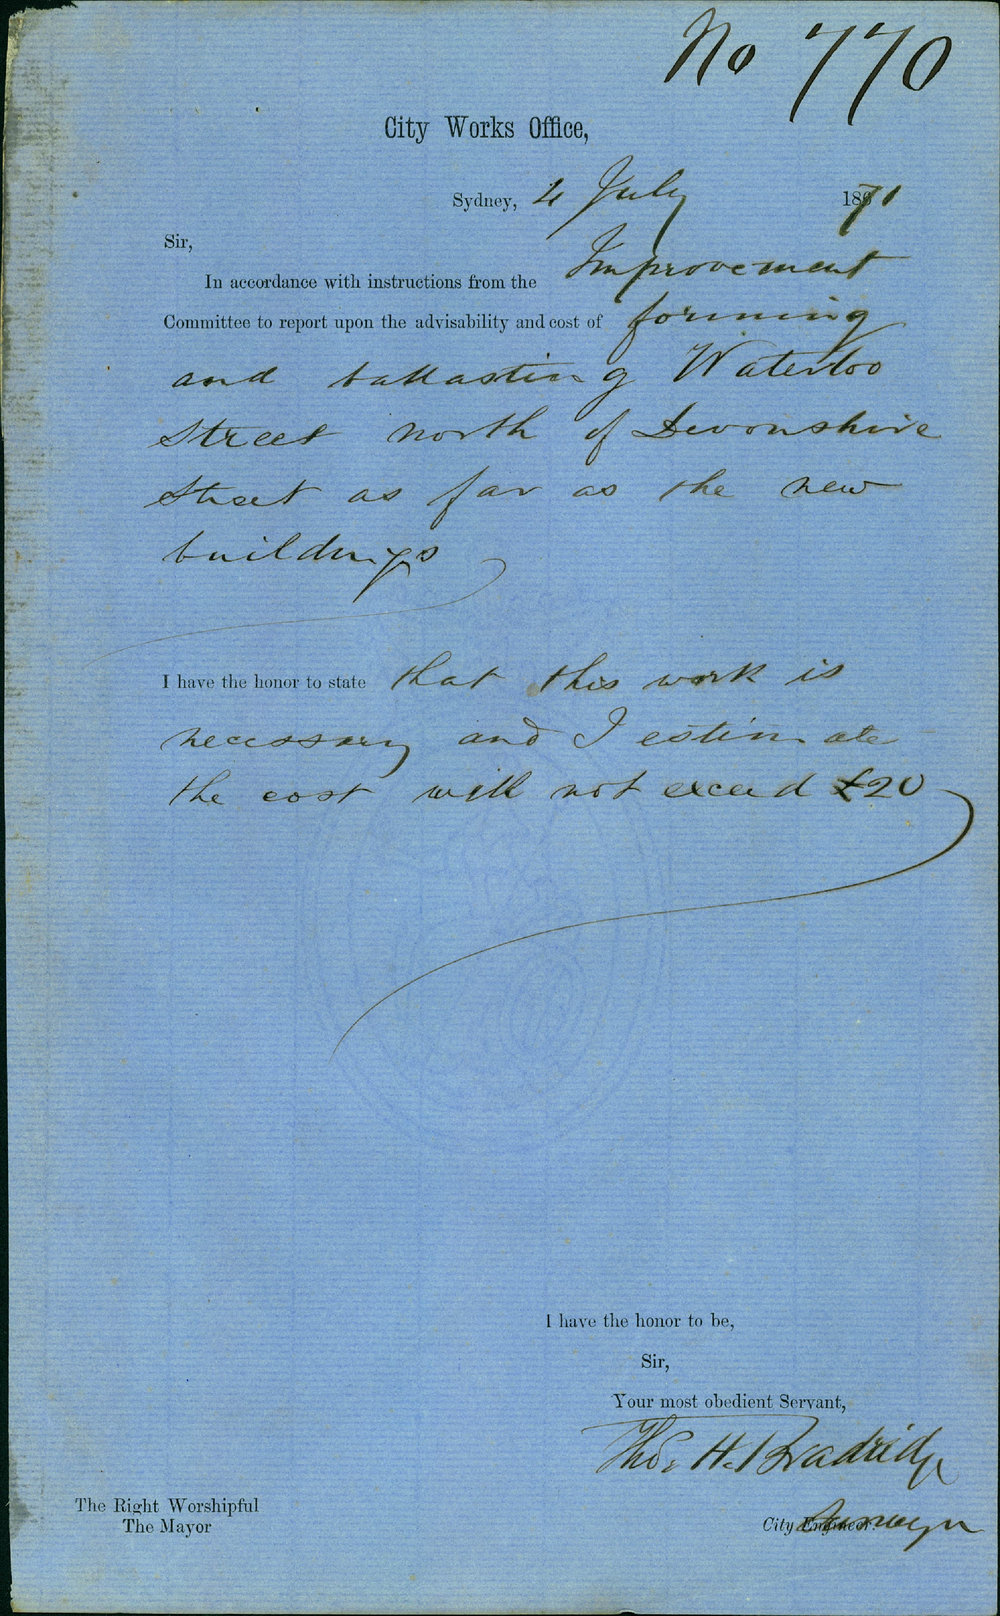 No 770
City Works Office,
Sydney, 4 July 1871
Sir,
In accordance with instructions from the Improvement
Committee to report upon the advisability and cost of forming
and ballasting Waterloo
Street north of Devonshire
Street as far as the new
buildings
I have the honor to state that this work is
necessary and I estimate
the cost will not exceed £20
I have the honor to be,
Sir,
Your most obedient Servant,
Thos. H. Bradridge
The Right Worshipful
The Mayor
City Surveyor